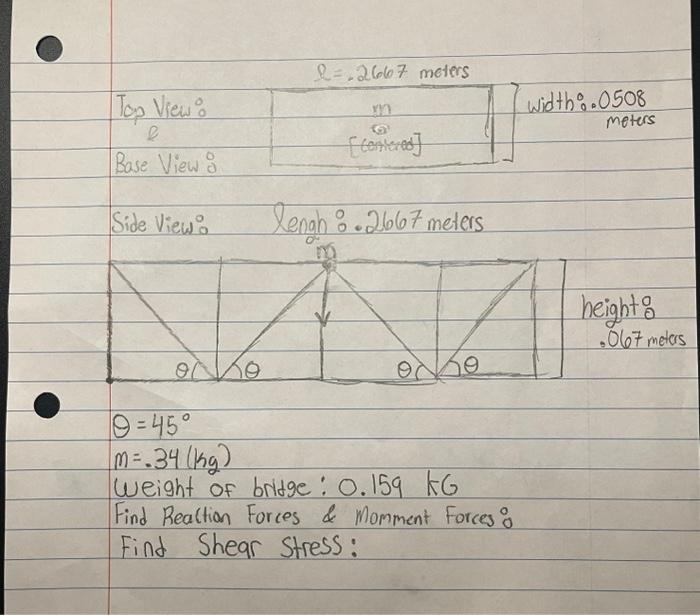 l = .2667 meters
Top View:
&
Base View:
m
[Centered]
width: .0508
meters
Side View:
lengh: .2667 meters
m
height:
.067 meters
θ θ θ θ
θ = 45°
m = .34 (kg)
Weight of bridge: 0.159 kG
Find Reaction Forces & Momment Forces:
Find Shear Stress: